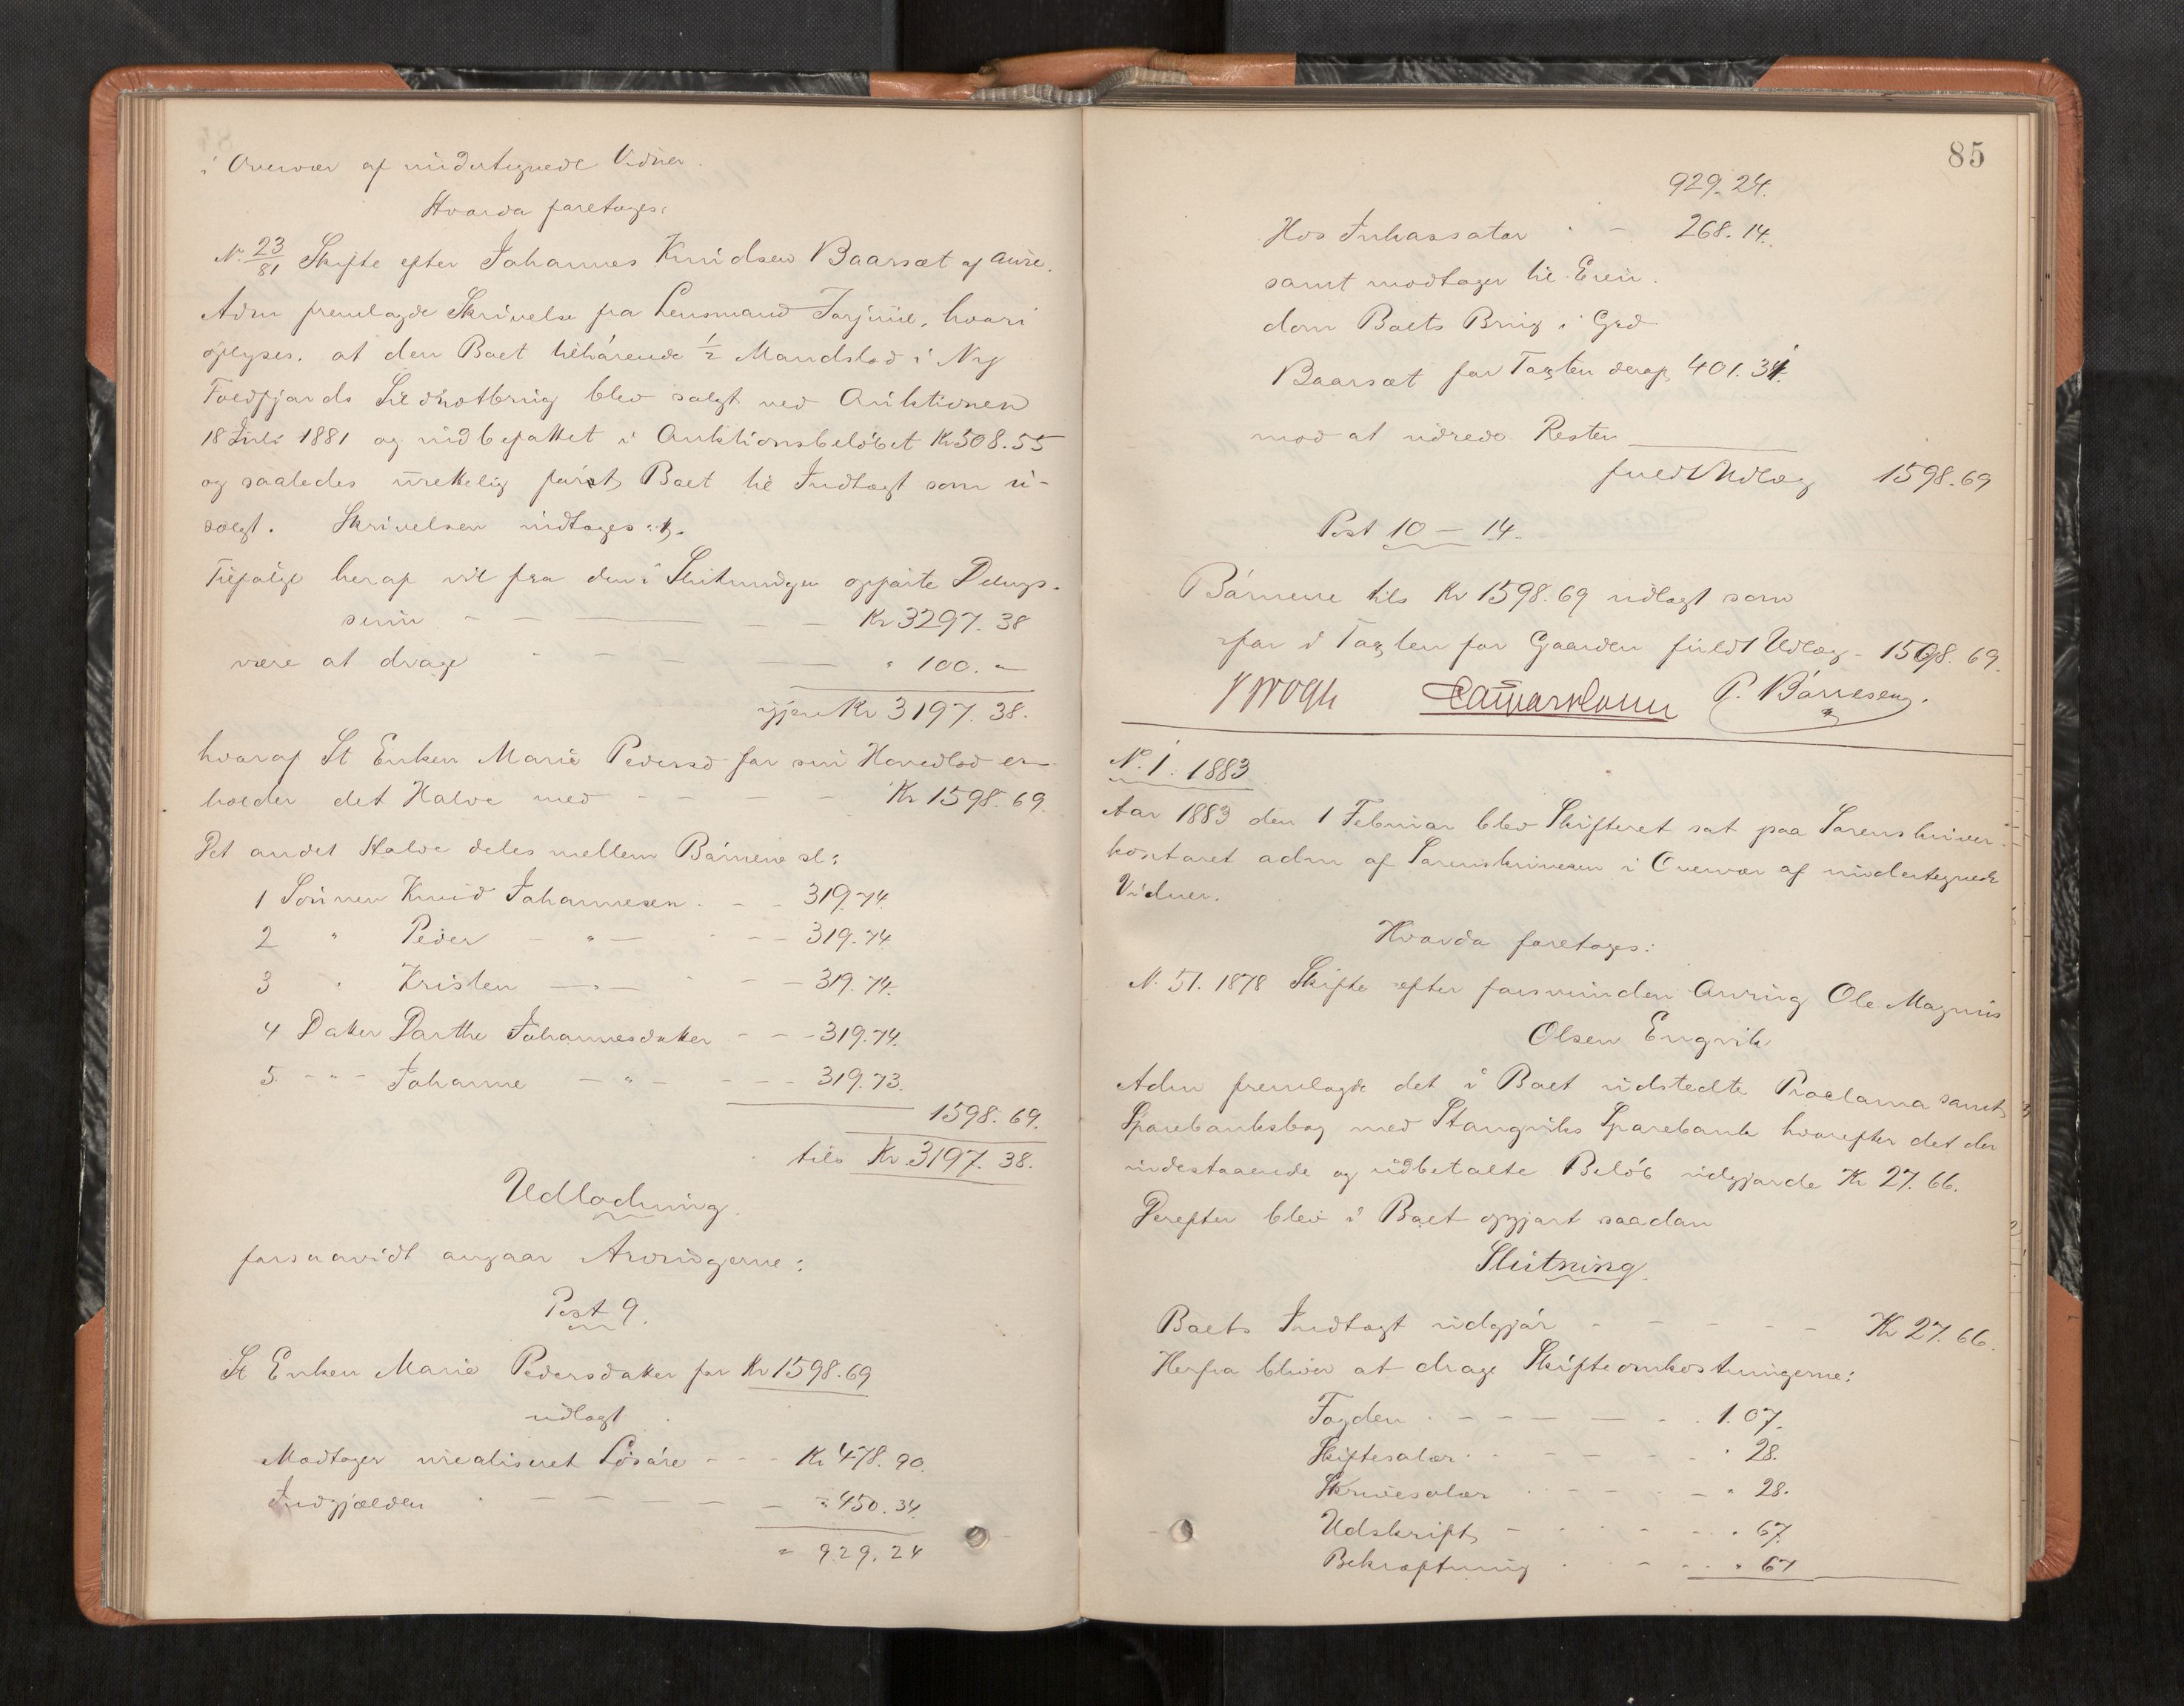 i Overvær af undertegnede Vidner.
Hvorda foretoges:
N. 23/81 Skifte efter Johannes Knudsen Baarsæt af Aure.
Adm fremlagde Skrivelse fra Lensmand, hvori
oplyses, at den Boet tilhørende 1/2 Mandslod i Ny
Foldfjords Sildnotbrug blev solgt ved Auktionen
18 Juli 1881 og indbefattet i Auktionsbeløbet Kr 508.55
og saaledes urettelig ført Boet til Indtægt som u-
solgt. Skrivelsen indtages:
Tilfølge heraf vil fra den i Slutningen opførte Delings-
sum - - - Kr 3297. 38
være at drage - - - " 100. "
igjen Kr 3197. 38.
hvoraf St Enken Marie Pedersd for sin Hovedlod er-
holder det Halve med - - - - Kr 1598. 69.
Det andet Halve deles mellem Børnene sl:
1 Sønnen Knud Johannesen - - 319.74.
2 " Peder - " - - - 319.74
3 " Kristen - " - - - 319.74.
4 Datter Dorthe Johannesdatter - - - 319.74.
5. - " - Johanne - " - - - - 319.73.
1598. 69.
tils Kr. 3197. 38.
Udlodning.
forsaavidt angaar Arvingerne:
Post 9.
St Enken Marie Pedersdatter for Kr 1598.69
udlagt
Modtager urealiseret Løsøre - - - Kr 478. 90.
Indgjælden - - - - - " 450. 34.
" 929. 24
85
929. 24.
Hos Inkassator " - 268. 14.
samt modtager til Eien-
dom Boets Brug i Grd
Baarsæt for Taxten deraf 401. 31.
mod at udrede Resten
fuldt Udlæg 1598. 69
Post 10 - 14.
Børnene tils Kr 1598. 69 udlagt som
før i Taxten for Gaarden fuldt Udlæg - 1598. 69.
P. Børresen.
N. 1. 1883
Aar 1883 den 1 Februar blev Skifteret sat paa Sorenskriver-
kontoret adm af Sorenskriveren i Overvær af undertegnede
Vidner.
Hvorda foretoges:
N. 51. 1878 Skifte efter forsvunden Arving Ole Magnus
Olsen Engvik
Adm fremlagde det i Boet udstedte Proclama samt
Sparebanksbog med Stangviks Sparebank hvorefter det der
indestaaende og udbetalte Beløb udgjorde Kr 27. 66.
Derefter blev i Boet opgjort saadan
Slutning.
Boets Indtægt udgjør - - - - - Kr 27. 66.
Herfra bliver at drage Skifteomkostningerne:
Fogden - - - - - 1. 07.
Skiftesalær - - - - - " 28.
Skrivesalær - - - - " 28.
Udskrift - - - - - " 67.
Bekræftning - - - - " 67